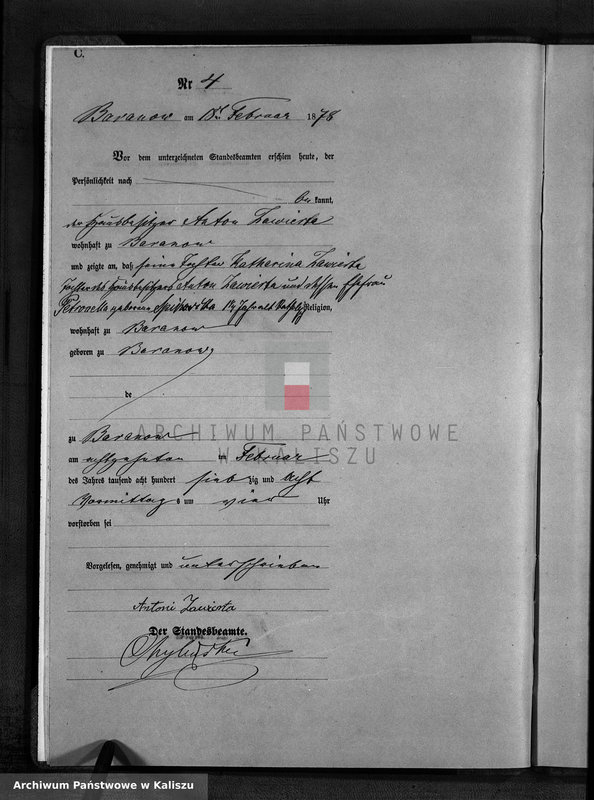 C.
Nr 4
Baranow am 18ten Februar 1878
Vor dem unterzeichneten Standesbeamten erschien heute, der
Persönlichkeit nach
be kannt,
der Hausbesitzer Anton Zawieta
wohnhaft zu Baranow
und zeigte an, daß seine Tochter Katharina
Tochter des Hausbesitzers Anton und dessen Ehefrau
Petronella geborene Jahr alt Religion,
wohnhaft zu Baranow
geboren zu Baranow,
de
zu Baranow
am achtzehnten im Februar
des Jahres tausend acht hundert sieb zig und acht
Vormittag s um vier Uhr
vorstorben sei
Vorgelesen, genehmigt und unterschrieben
Antoni
Der Standesbeamte.
ARCHIWUM PAŃSTWOWE
W KALISZU
Archiwum Państwowe w Kaliszu